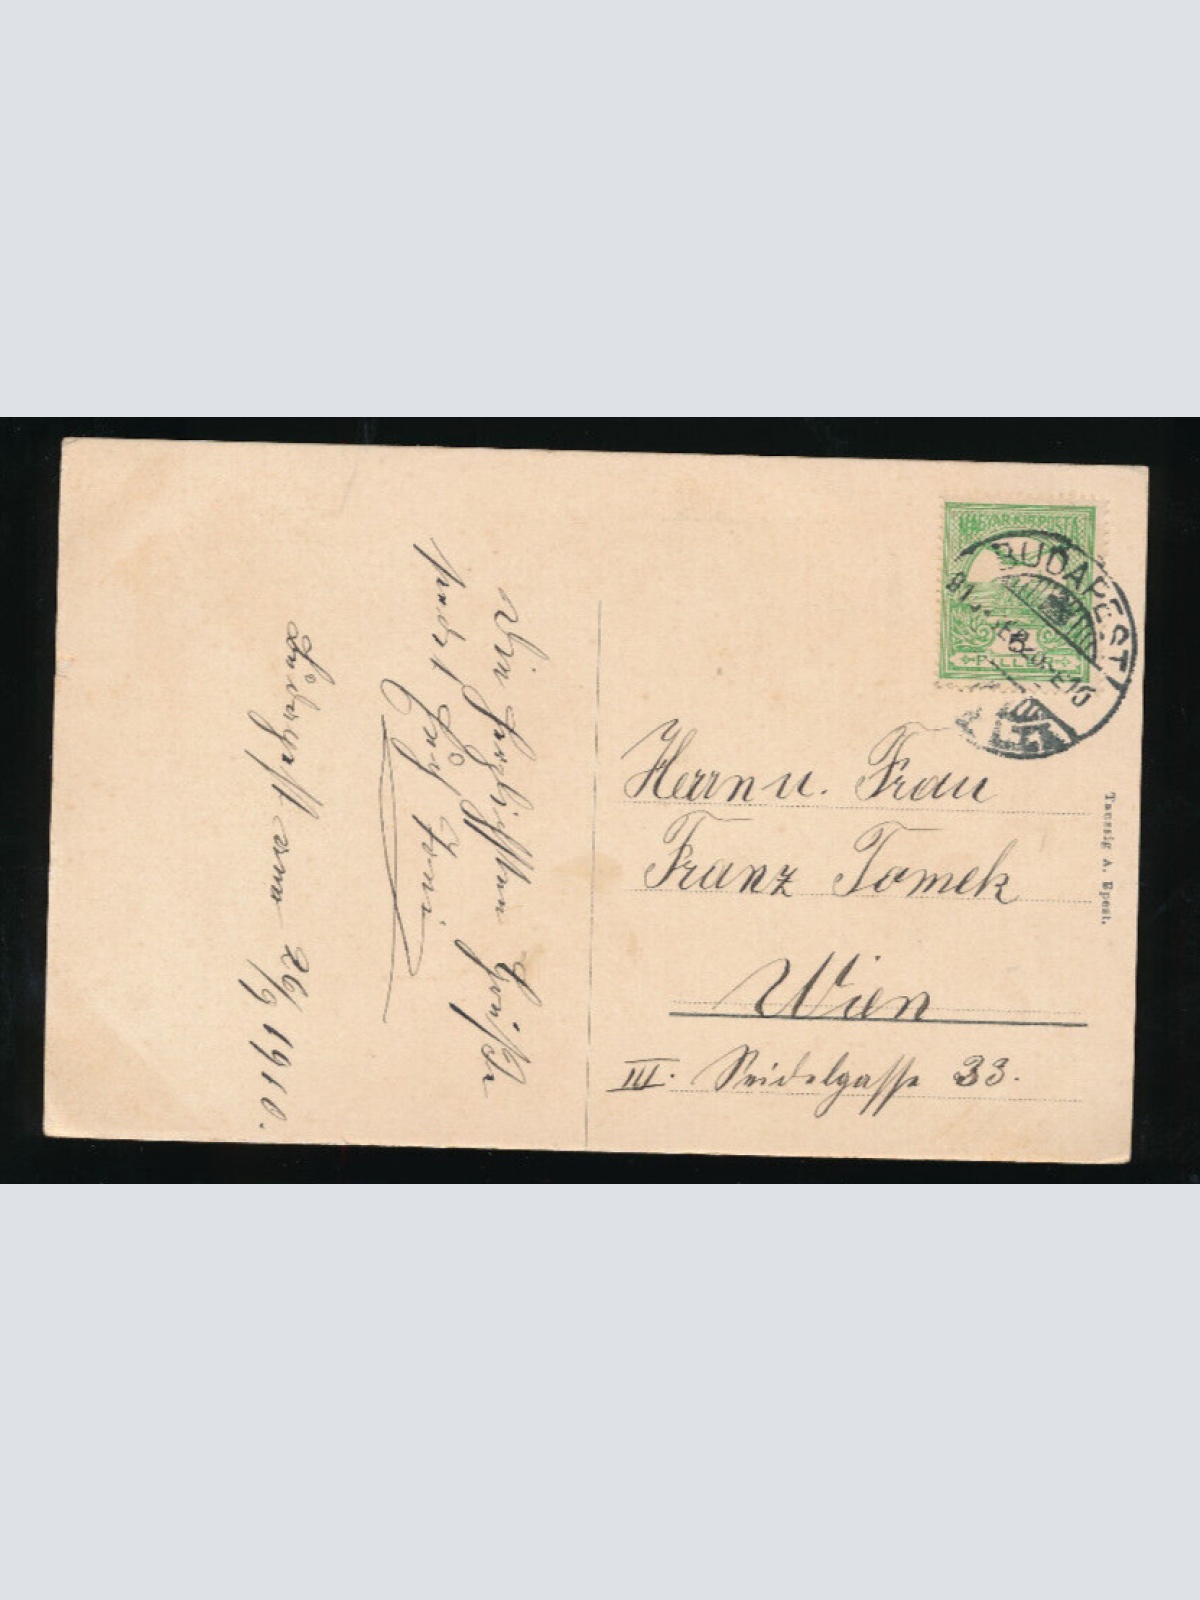 Die herzlichsten Grüße
sendet Euch
Toni
Budapest am 26/9 1910.
MAGYAR KIR. POSTA
5
FILLÉR
BUDAPEST
Herrn u. Frau
Franz Tomek
Wien
III. Seidelgasse 33.
Taussig A. Bpest.